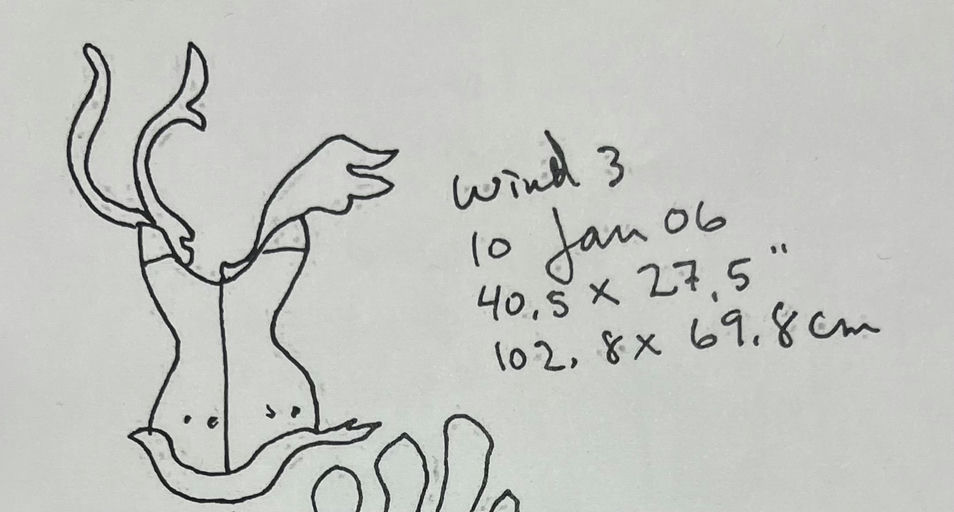 Wind 3
10 Jan 06
40.5 x 27.5"
102.8 x 69.8 cm